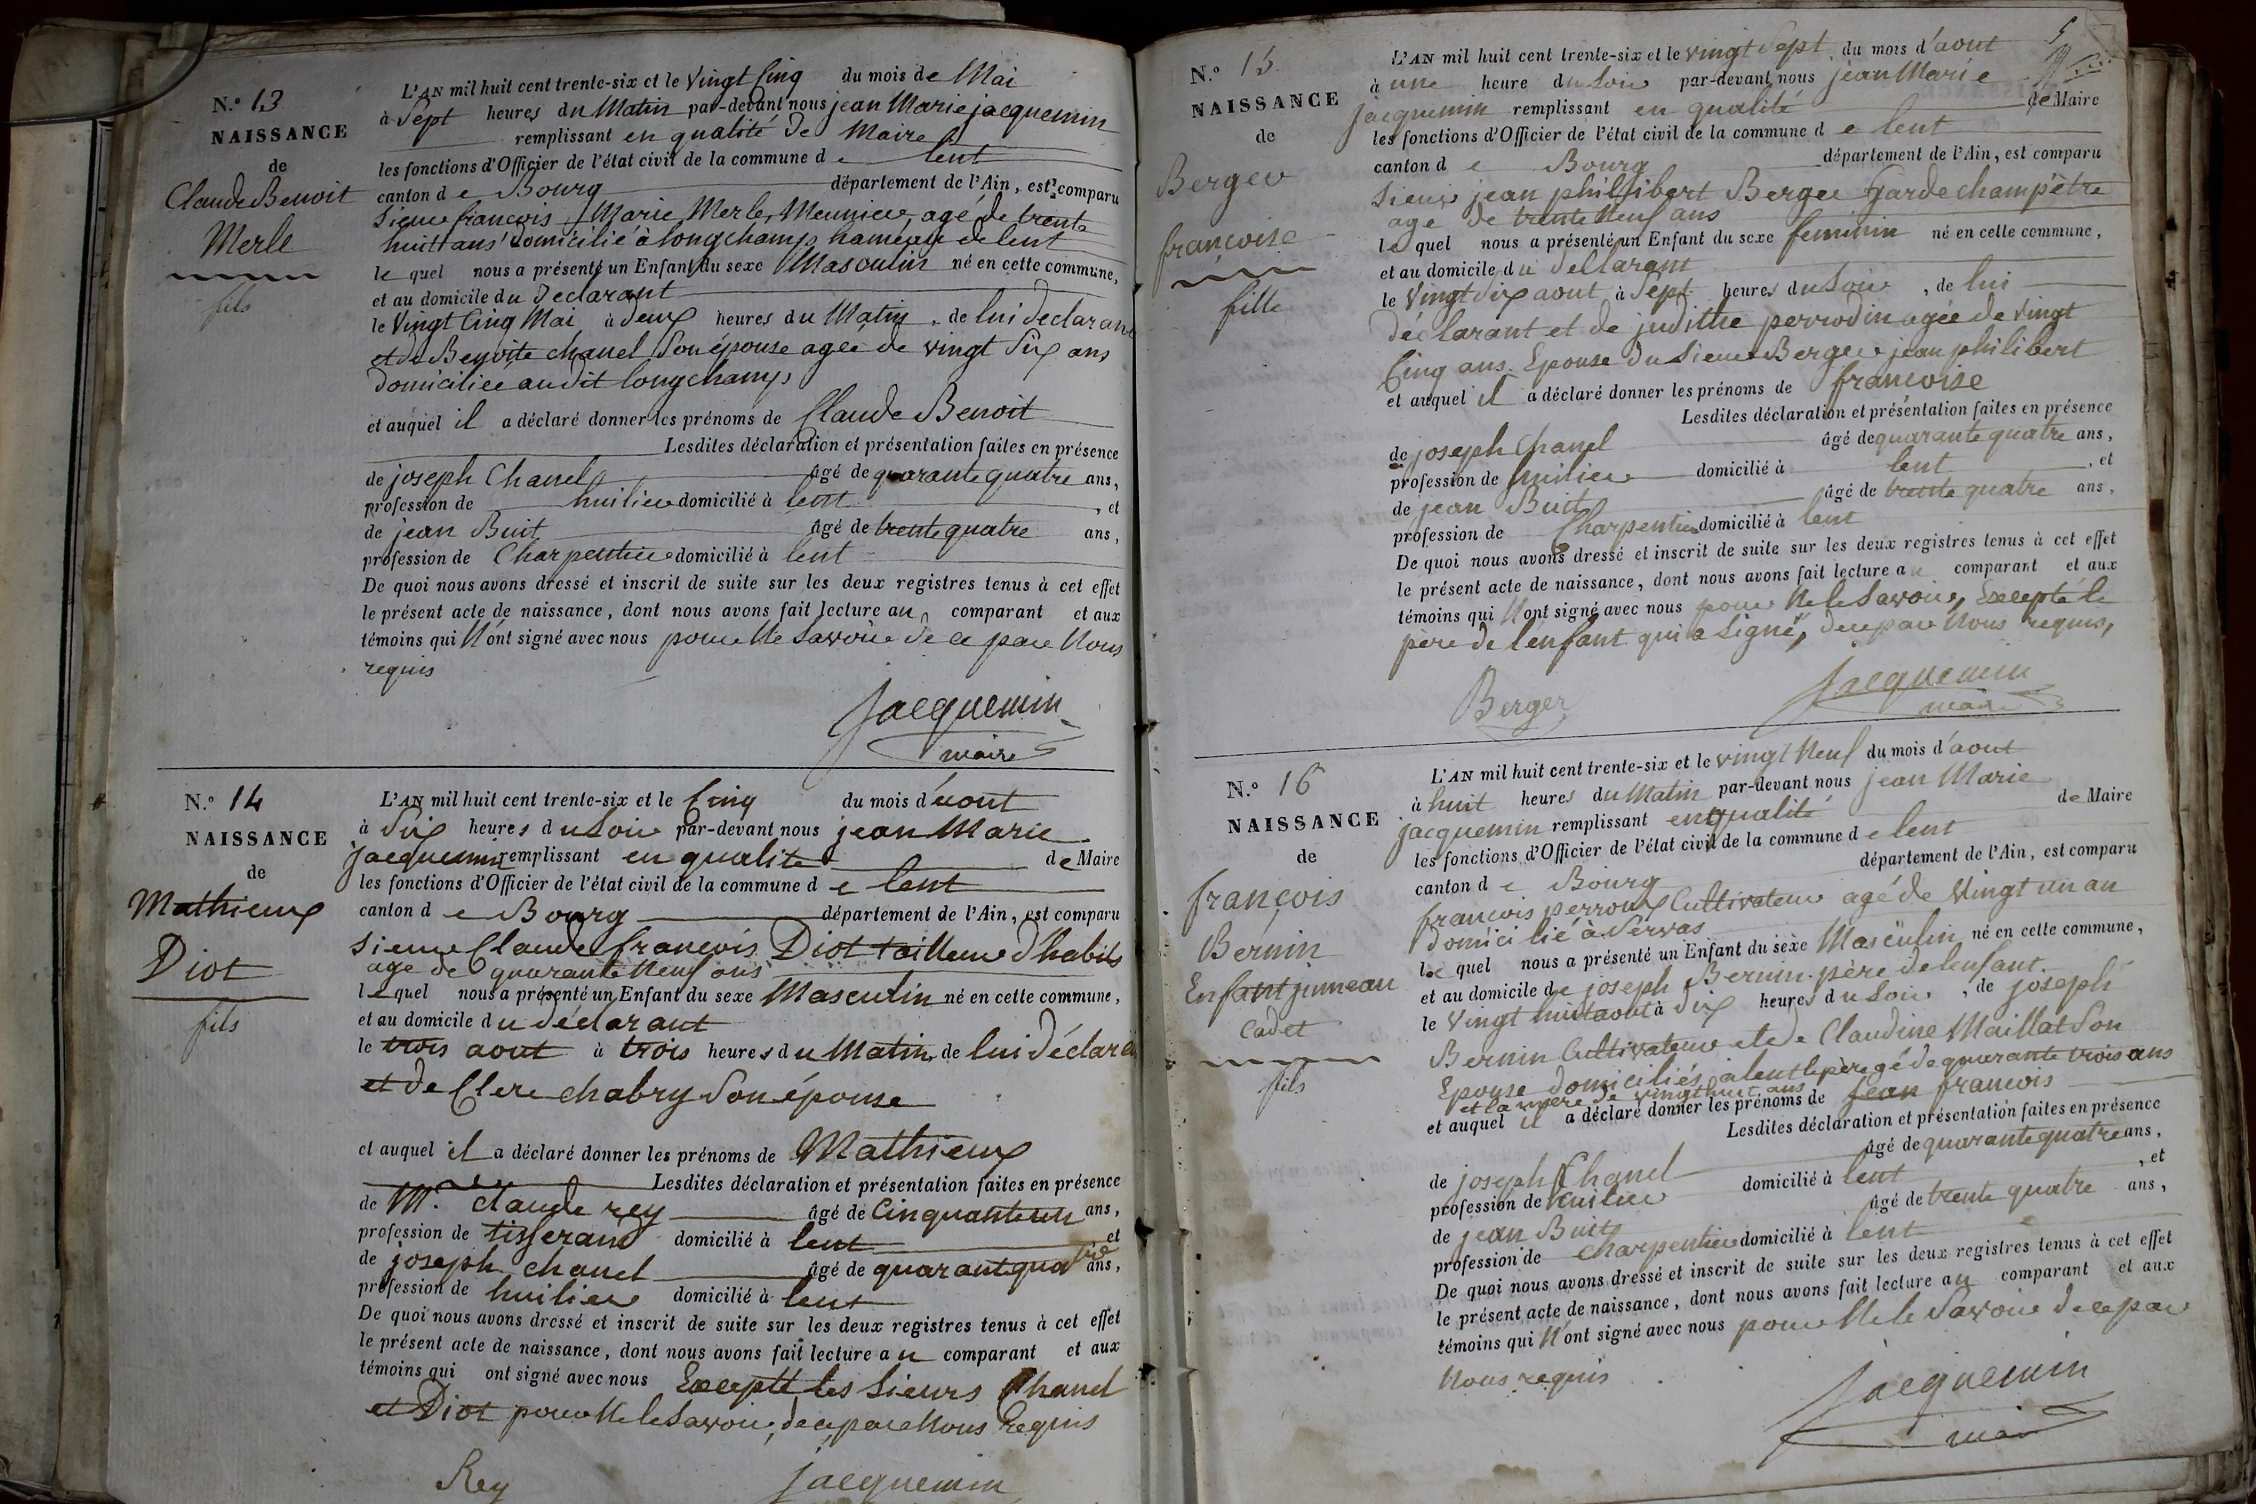 N.° 13
NAISSANCE
de
Claude Benoit
Merle
fils
L'AN mil huit cent trente-six et le Vingt Cinq du mois de Mai
à Sept heures du Matin par-devant nous jean Marie jacquemin
remplissant en qualité de Maire
les fonctions d'Officier de l'état civil de la commune de lent
canton de Bourg département de l'Ain, est comparu
Sieur françois Marie Merle, Meunier, agé de trente
huit ans domicilié à longchamp hameau de lent
le quel nous a présenté un Enfant du sexe Masculin né en cette commune,
et au domicile du Declarant
le Vingt Cinq Mai à deux heures du Matin, de lui declarant
et de Benoite chanel Son épouse agée de vingt Six ans
domiciliée audit longchamp
et auquel il a déclaré donner les prénoms de Claude Benoit
Lesdites déclaration et présentation faites en présence
de joseph Chanel âgé de quarante quatre ans,
profession de huilier domicilié à lent, et
de jean Buit âgé de trente quatre ans,
profession de Charpentier domicilié à lent
De quoi nous avons dressé et inscrit de suite sur les deux registres tenus à cet effet
le présent acte de naissance, dont nous avons fait lecture au comparant et aux
témoins qui N'ont signé avec nous pour Ne Savoir de ce par Nous
requis
Jacquemin
maire
N.° 14
NAISSANCE
de
Mathieux
Diot
fils
L'AN mil huit cent trente-six et le Cinq du mois d'aout
à Six heures du Soir par-devant nous jean Marie
jacquemin remplissant en qualité de Maire
les fonctions d'Officier de l'état civil de la commune de lent
canton de Bourg département de l'Ain, est comparu
Sieur Claude françois Diot tailleur d'habits
age de quarante Neuf ans
le quel nous a présenté un Enfant du sexe Masculin né en cette commune,
et au domicile du déclarant
le trois aout à trois heures du Matin, de lui déclarant
et de Clere chabry Son épouse
et auquel il a déclaré donner les prénoms de Mathieux
Lesdites déclaration et présentation faites en présence
de Mr. Claude rey âgé de Cinquanteun ans,
profession de tisserand domicilié à lent et
de joseph chanel âgé de quarantequatre ans,
profession de huilier domicilié à lent
De quoi nous avons dressé et inscrit de suite sur les deux registres tenus à cet effet
le présent acte de naissance, dont nous avons fait lecture au comparant et aux
témoins qui ont signé avec nous Excepté les Sieurs Chanel
et Diot pour Ne le Savoir, de ce par Nous Requis
Rey Jacquemin
5
N.° 15
NAISSANCE
de
Berger
françoise
fille
L'AN mil huit cent trente-six et le vingt Sept du mois d'aout
à une heure du Soir par-devant nous jean Marie
jacquemin remplissant en qualité de Maire
les fonctions d'Officier de l'état civil de la commune de lent
canton de Bourg département de l'Ain, est comparu
Sieur jean philibert Berger Garde champêtre
age de trente Neuf ans
le quel nous a présenté un Enfant du sexe feminin né en cette commune,
et au domicile du déclarant
le Vingt Six aout à Sept heures du Soir, de lui
déclarant et de judithe perrodin agée de vingt
Cinq ans Epouse du Sieur Berger jean philibert
et auquel il a déclaré donner les prénoms de françoise
Lesdites déclaration et présentation faites en présence
de joseph Chanel âgé de quarante quatre ans,
profession de huilier domicilié à lent, et
de jean Buit âgé de trente quatre ans,
profession de Charpentier domicilié à lent
De quoi nous avons dressé et inscrit de suite sur les deux registres tenus à cet effet
le présent acte de naissance, dont nous avons fait lecture au comparant et aux
témoins qui N'ont signé avec nous pour Ne le Savoir, Excepté le
père de l'enfant qui a Signé, de ce par Nous requis,
Berger Jacquemin
maire
N.° 16
NAISSANCE
de
françois
Bernin
Enfant jumeau
Cadet
fils
L'AN mil huit cent trente-six et le vingt Neuf du mois d'aout
à huit heures du Matin par-devant nous jean Marie
jacquemin remplissant en qualité de Maire
les fonctions d'Officier de l'état civil de la commune de lent
canton de Bourg département de l'Ain, est comparu
françois perroux Cultivateur agé de Vingt un an
domicilié à Servas
le quel nous a présenté un Enfant du sexe Masculin né en cette commune,
et au domicile de joseph Bernin père de lenfant
le Vingt huit aout à dix heures du Soir, de joseph
Bernin Cultivateur et de Claudine Maillat Son
Epouse domiciliés à lent le père gé de quarante trois ans
et la mère de vingt huit ans
et auquel il a déclaré donner les prénoms de jean françois
Lesdites déclaration et présentation faites en présence
de joseph Chanel âgé de quarante quatre ans,
profession de huilier domicilié à lent, et
de jean Buit âgé de trente quatre ans,
profession de charpentier domicilié à lent
De quoi nous avons dressé et inscrit de suite sur les deux registres tenus à cet effet
le présent acte de naissance, dont nous avons fait lecture au comparant et aux
témoins qui N'ont signé avec nous pour Ne le Savoir de ce par
Nous requis
Jacquemin
maire